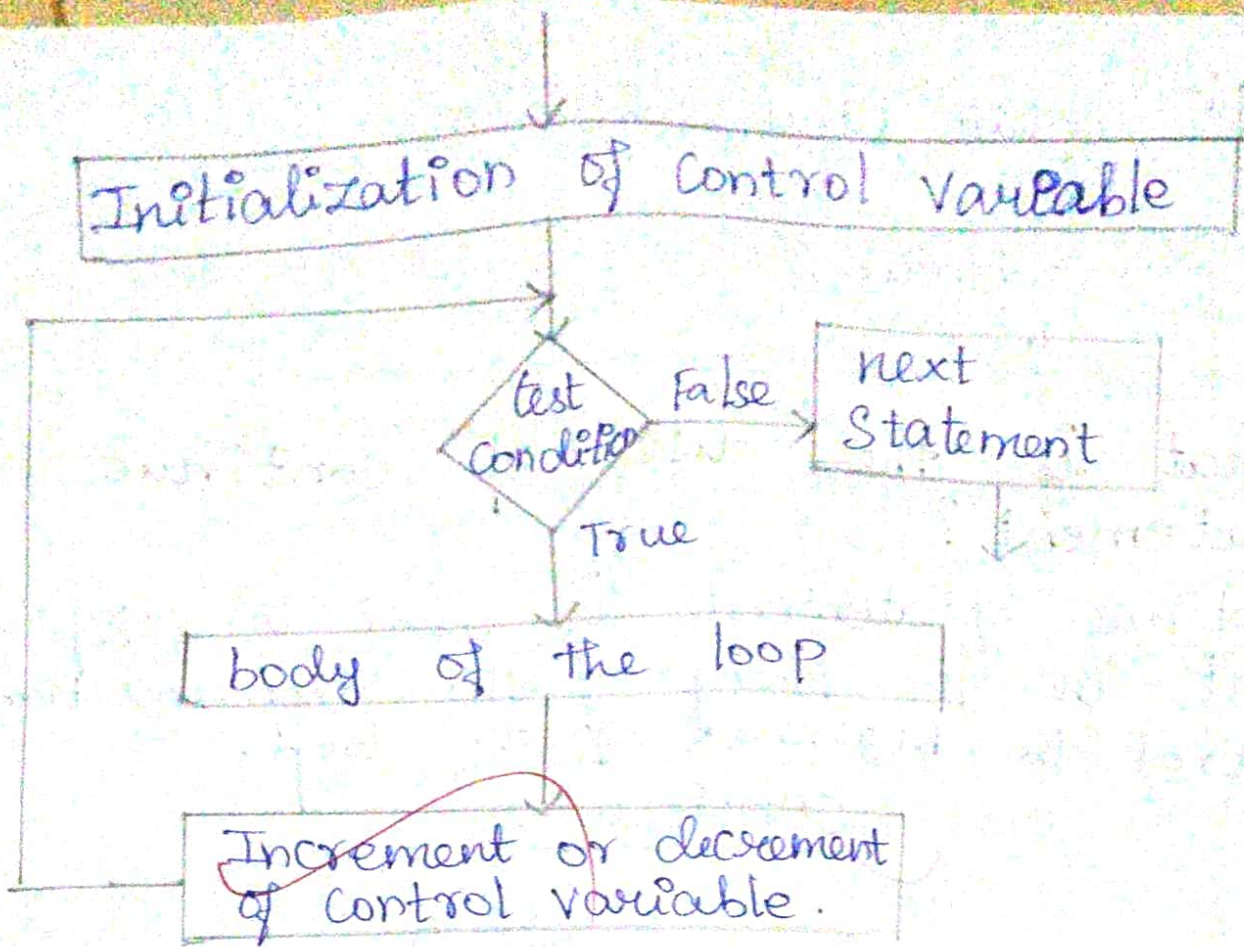 Initialization of Control Variable
test
Condition
False
next
Statement
True
body of the loop
Increment or decrement
of Control variable.